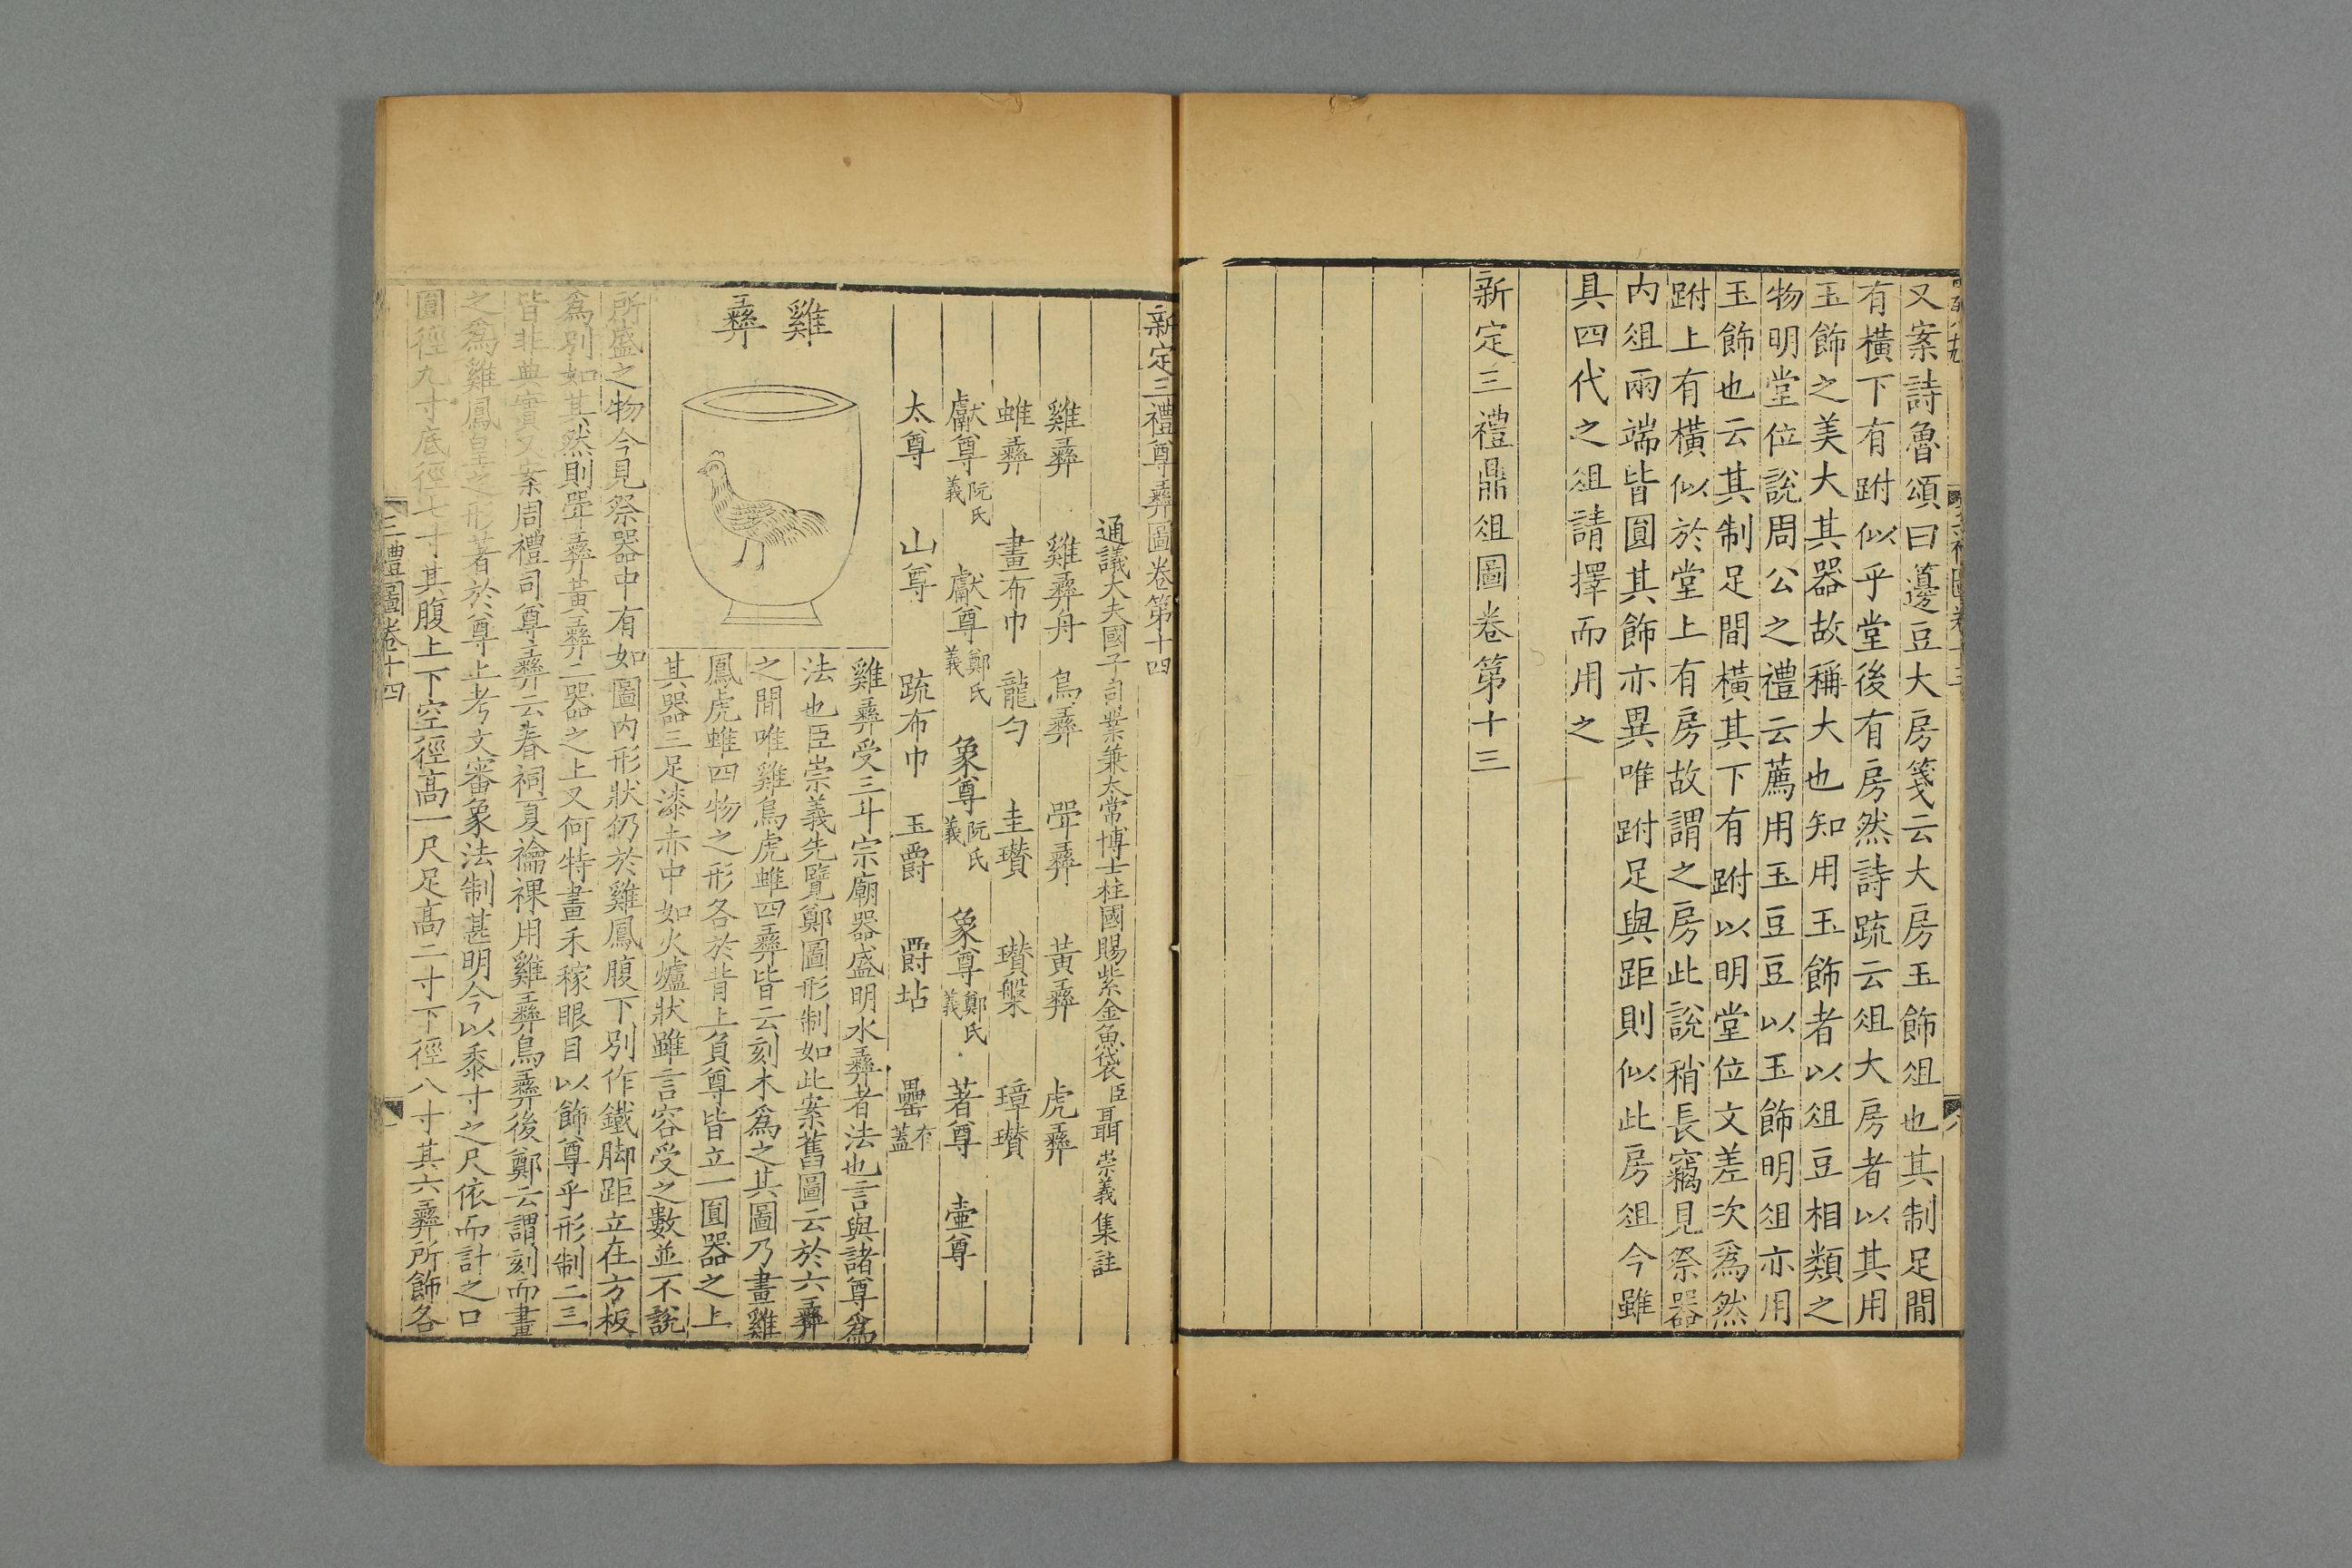 又案詩魯頌曰籩豆大房箋云大房玉飾俎也其制足間
有橫下有跗似乎堂後有房然詩疏云俎大房者以其用
玉飾之美大其器故稱大也知用玉飾者以俎豆相類之
物明堂位說周公之禮云薦用玉豆豆以玉飾明俎亦用
玉飾也云其制足間橫其下有跗以明堂位文差次爲然
跗上有橫似於堂上有房故謂之房此說稍長竊見祭器
内俎兩端皆圓其飾亦異唯跗足與距則似此房俎今雖
具四代之俎請擇而用之
新定三禮鼎俎圖卷第十三
新定三禮尊彞圖卷第十四
通議大夫國子司業兼太常博士柱國賜紫金魚袋臣聶崇義集註
雞彞 雞彞舟 鳥彞 斝彞 黃彞 虎彞
蜼彞 畫布巾 龍勺 圭瓚 瓚槃 璋瓚
獻尊阮氏義 獻尊鄭氏義 象尊阮氏義 象尊鄭氏義 著尊 壷尊
太尊 山尊 疏布巾 玉爵 爵坫 罍有蓋
雞彞
雞彞受三斗宗廟器盛明水彞者法也言與諸尊爲
法也臣崇義先覽鄭圖形制如此案舊圖云於六彞
之間唯雞鳥虎蜼四彞皆云刻木爲之其圖乃畫雞
鳳虎蜼四物之形各於背上負尊皆立一圓器之上
其器三足漆赤中如火爐狀雖言容受之數並不說
所盛之物今見祭器中有如圖内形狀仍於雞鳳腹下別作鐵脚距立在方板
爲別如其然則斝彞黃彞二器之上又何特畫禾稼眼目以飾尊乎形制二三
皆非典實又案周禮司尊彞云春祠夏禴祼用雞彞鳥彞後鄭云謂刻而畫
之爲雞鳳皇之形著於尊上考文審象法制甚明今以黍寸之尺依而計之口
圓徑九寸底徑七寸其腹上下空徑高一尺足高二寸下徑八寸其六彞所飾各
三禮圖卷十四